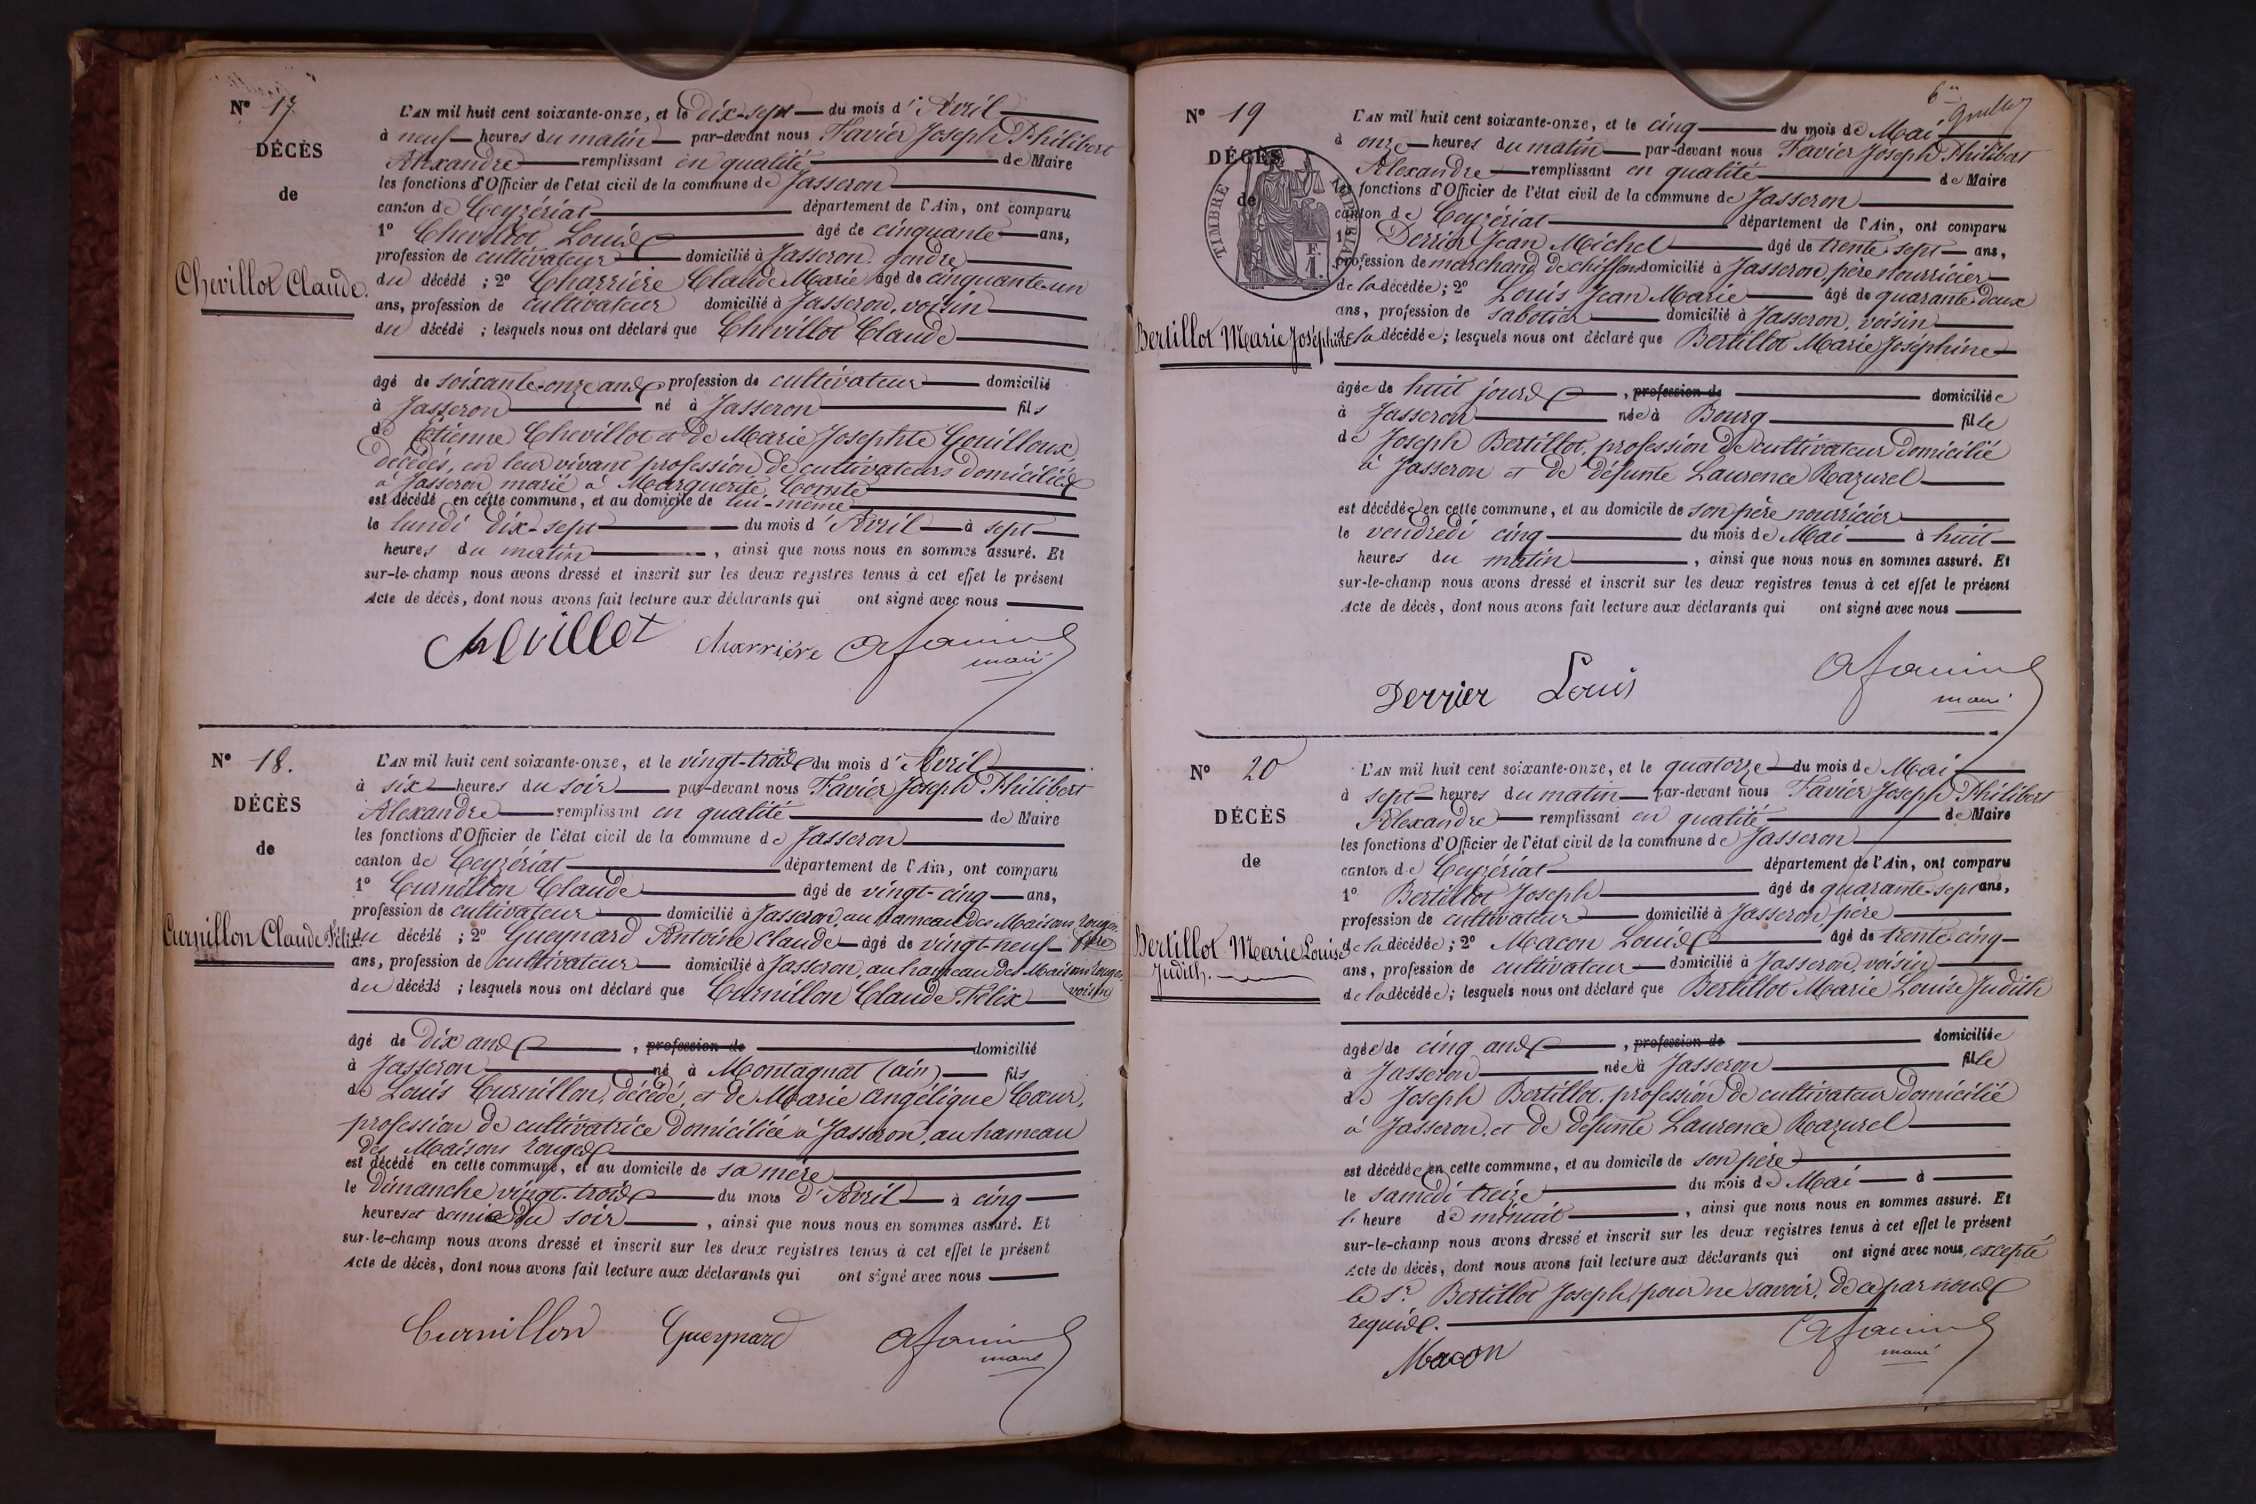 N° 17
DÉCÈS
de
Chevillot Claude.
L'AN mil huit cent soixante-onze, et le dix-sept du mois d'Avril
à neuf heures du matin par-devant nous Favier Joseph Philibert
Alexandre remplissant en qualité de Maire
les fonctions d'Officier de l'état civil de la commune de Jasseron
canton de Ceyzériat département de l'Ain, ont comparu
1° Chevillot Louis âgé de cinquante ans,
profession de cultivateur domicilié à Jasseron gendre
du décédé ; 2° Charrière Claude Marie âgé de cinquante un
ans, profession de cultivateur domicilié à Jasseron, voisin
du décédé ; lesquels nous ont déclaré que Chevillot Claude
âgé de soixante-onze ans profession de cultivateur domicilié
à Jasseron né à Jasseron fils
de Etienne Chevillot et de Marie Josephte Gouilloux
décédés, en leur vivant profession de cultivateurs domiciliés
à Jasseron marié à Marguerite Comte
est décédé en cette commune, et au domicile de lui-même
le lundi dix-sept du mois d'Avril à sept
heures du matin, ainsi que nous nous en sommes assuré. Et
sur-le-champ nous avons dressé et inscrit sur les deux registres tenus à cet effet le présent
Acte de décès, dont nous avons fait lecture aux déclarants qui ont signé avec nous
Chevillot Charrière A favier
maire
N° 18.
DÉCÈS
de
Curnillon Claude Félix.
L'AN mil huit cent soixante-onze, et le vingt-trois du mois d'Avril
à six heures du soir par-devant nous Favier Joseph Philibert
Alexandre remplissant en qualité de Maire
les fonctions d'Officier de l'état civil de la commune de Jasseron
canton de Ceyzériat département de l'Ain, ont comparu
1° Curnillon Claude âgé de vingt-cinq ans,
profession de cultivateur domicilié à Jasseron, au hameau des Maisons rouges, frère
du décédé ; 2° Gueynard Antoine Claude âgé de vingt-neuf
ans, profession de cultivateur domicilié à Jasseron, au hameau des Maisons rouges, voisin
du décédé ; lesquels nous ont déclaré que Curnillon Claude Félix
âgé de dix ans, profession de domicilié
à Jasseron né à Montagnat (ain) fils
de Louis Curnillon, décédé, et de Marie Angélique Cœur,
profession de cultivatrice domiciliée à Jasseron, au hameau
des Maisons rouges
est décédé en cette commune, et au domicile de sa mère
le dimanche vingt-trois du mois d'Avril à cinq
heures et demie du soir, ainsi que nous nous en sommes assuré. Et
sur-le-champ nous avons dressé et inscrit sur les deux registres tenus à cet effet le présent
Acte de décès, dont nous avons fait lecture aux déclarants qui ont signé avec nous
Curnillon Gueynard A favier
maire
6e
N° 19
DÉCÈS
de
TIMBRE IMPÉRIAL
F.
1.
Bertillot Marie Joséphine
L'AN mil huit cent soixante-onze, et le cinq du mois de Mai
à onze heures du matin par-devant nous Favier Joseph Philibert
Alexandre remplissant en qualité de Maire
les fonctions d'Officier de l'état civil de la commune de Jasseron
canton de Ceyzériat département de l'Ain, ont comparu
1° Derrier Jean Michel âgé de trente-sept ans,
profession de marchand de chiffons domicilié à Jasseron, père nourricier
de la décédée ; 2° Louis Jean Marie âgé de quarante-deux
ans, profession de sabotier domicilié à Jasseron, voisin
de la décédée ; lesquels nous ont déclaré que Bertillot Marie Joséphine
âgée de huit jours, profession de domiciliée
à Jasseron née à Bourg fille
de Joseph Bertillot, profession de cultivateur domicilié
à Jasseron et de défunte Laurence Razurel
est décédée en cette commune, et au domicile de son père nourricier
le vendredi cinq du mois de Mai à huit
heures du matin, ainsi que nous nous en sommes assuré. Et
sur-le-champ nous avons dressé et inscrit sur les deux registres tenus à cet effet le présent
Acte de décès, dont nous avons fait lecture aux déclarants qui ont signé avec nous
Derrier Louis A favier
maire
N° 20
DÉCÈS
de
Bertillot Marie Louise
Judith.
L'AN mil huit cent soixante-onze, et le quatorze du mois de Mai
à sept heures du matin par-devant nous Favier Joseph Philibert
Alexandre remplissant en qualité de Maire
les fonctions d'Officier de l'état civil de la commune de Jasseron
canton de Ceyzériat département de l'Ain, ont comparu
1° Bertillot Joseph âgé de quarante-sept ans,
profession de cultivateur domicilié à Jasseron, père
de la décédée ; 2° Macon Louis âgé de trente-cinq
ans, profession de cultivateur domicilié à Jasseron, voisin
de la décédée ; lesquels nous ont déclaré que Bertillot Marie Louise Judith
âgée de cinq ans, profession de domiciliée
à Jasseron née à Jasseron fille
de Joseph Bertillot, profession de cultivateur domicilié
à Jasseron, et de défunte Laurence Razurel
est décédée en cette commune, et au domicile de son père
le samedi treize du mois de Mai à
l'heure de minuit, ainsi que nous nous en sommes assuré. Et
sur-le-champ nous avons dressé et inscrit sur les deux registres tenus à cet effet le présent
Acte de décès, dont nous avons fait lecture aux déclarants qui ont signé avec nous, excepté
le Sr Bertillot Joseph, pour ne savoir, de ce par nous
requis.
Macon A favier
maire